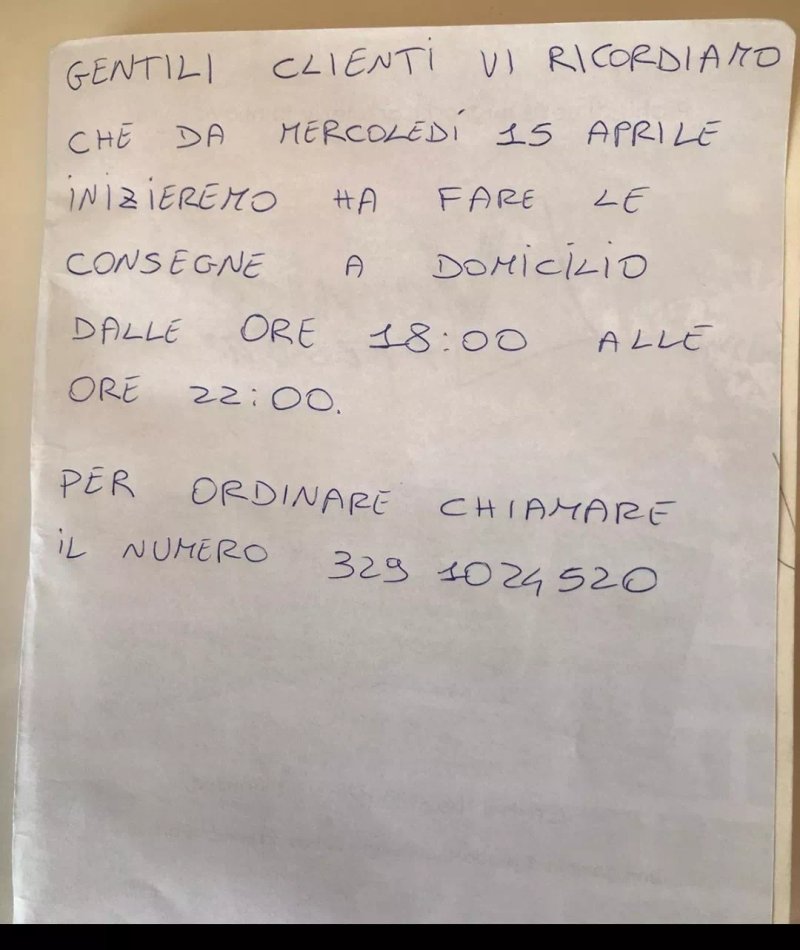 GENTILI CLIENTI VI RICORDIAMO
CHE DA MERCOLEDÍ 15 APRILE
INIZIEREMO HA FARE LE
CONSEGNE A DOMICILIO
DALLE ORE 18:00 ALLE
ORE 22:00.
PER ORDINARE CHIAMARE
IL NUMERO 329 1024520